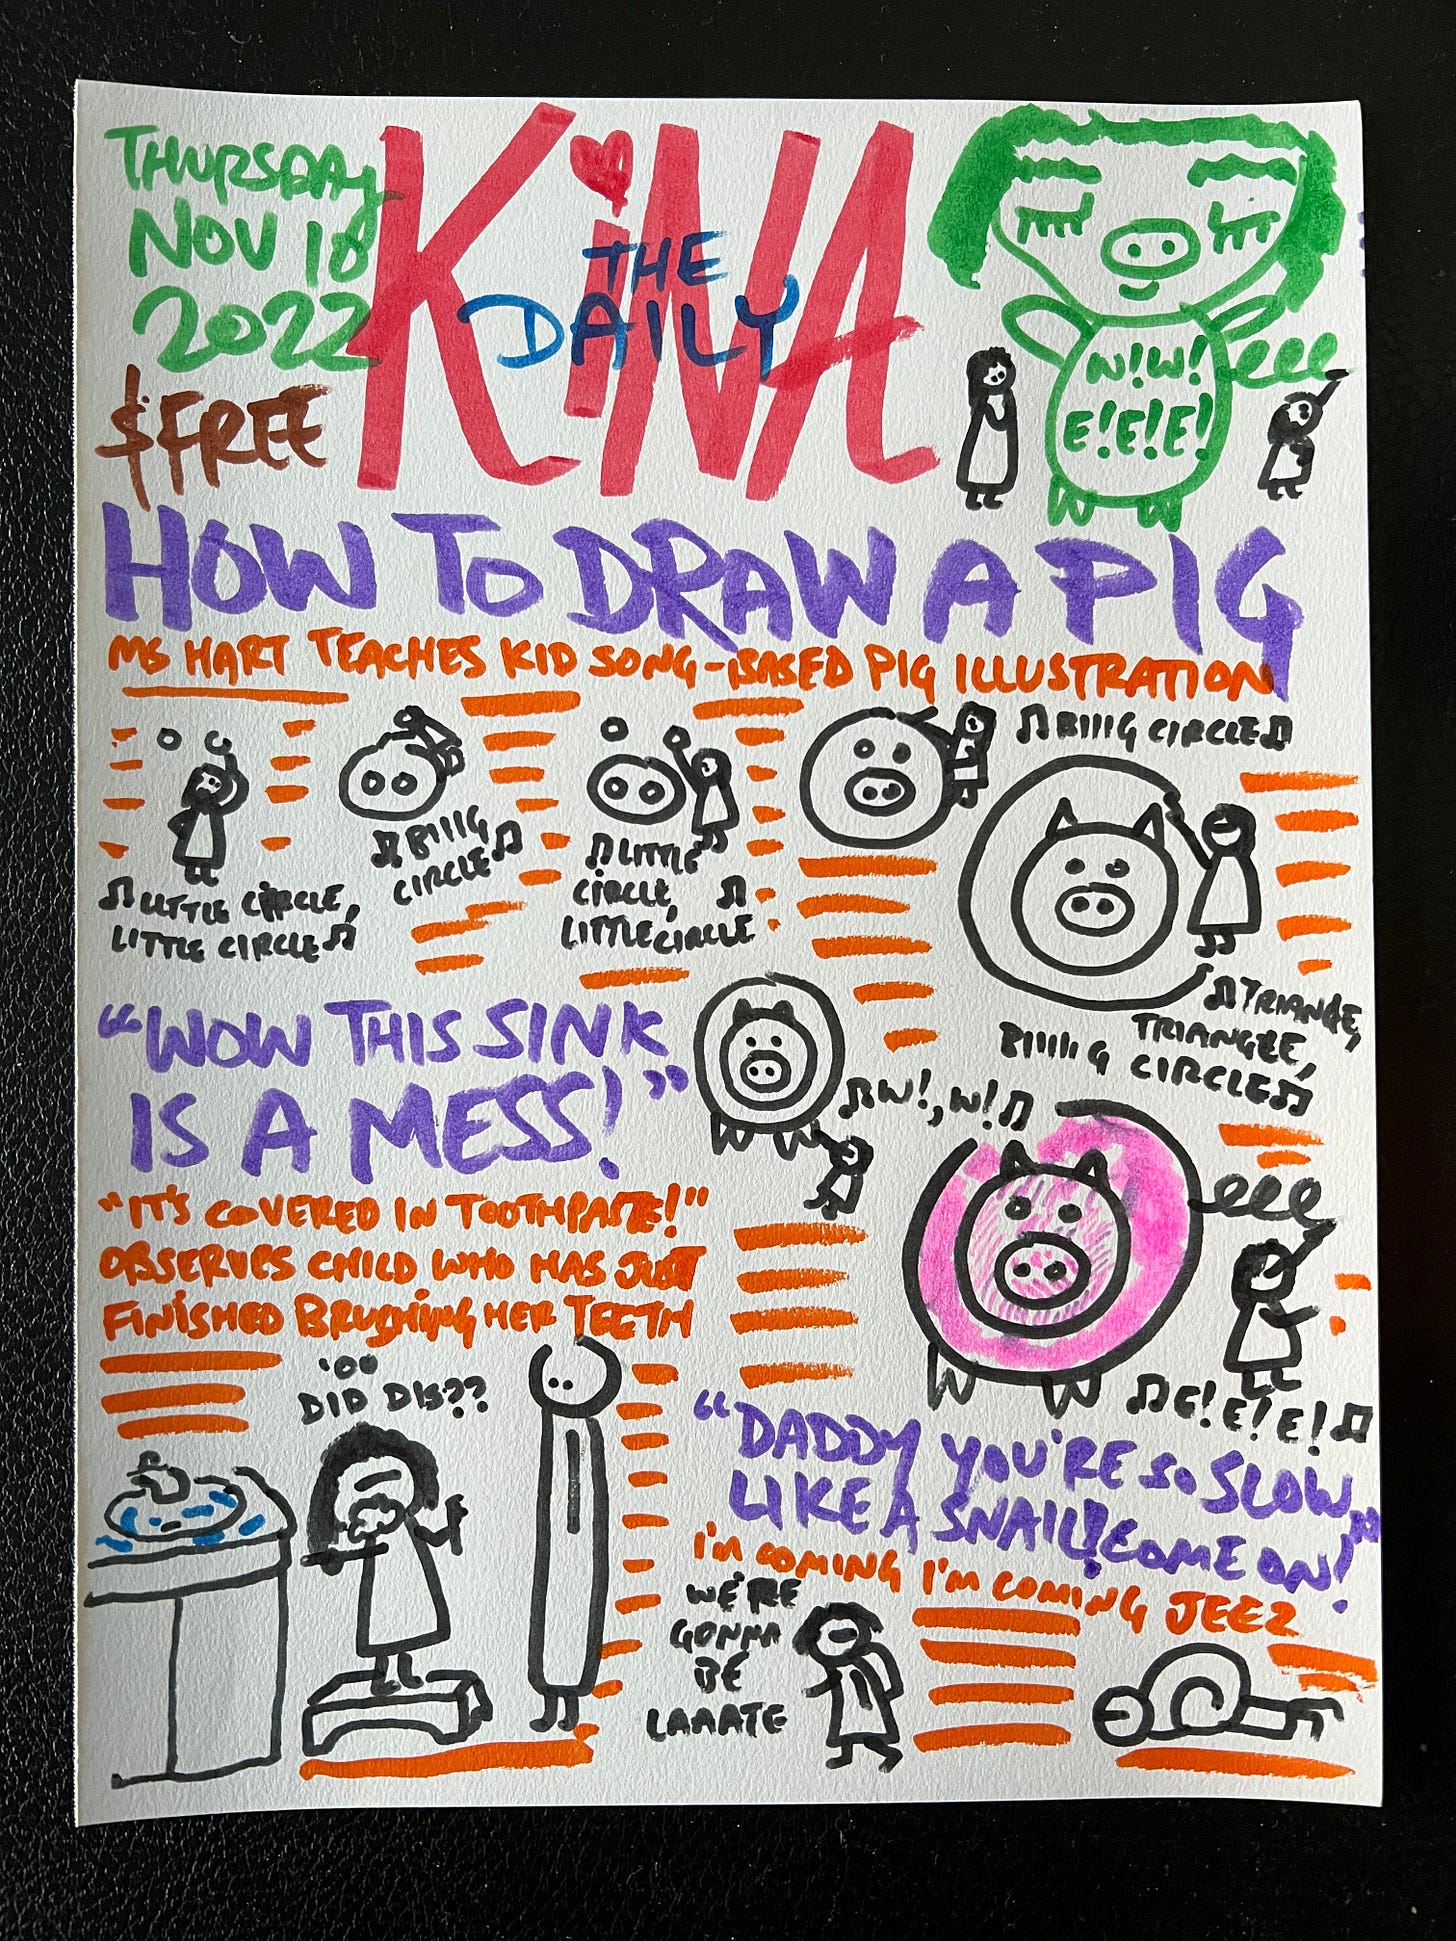 THURSDAY
NOV 10
2022
$FREE
THE
DAILY
KiNA
N!W!
E!E!E!
eee
HOW TO DRAW A PIG
MS HART TEACHES KID SONG-BASED PIG ILLUSTRATION
♫ LITTLE CIRCLE,
LITTLE CIRCLE ♫
♫ BIIIG ♫
CIRCLE
♫ LITTLE
CIRCLE, ♫
LITTLE CIRCLE
♫ BIIIG CIRCLE ♫
♫ TRIANGE,
TRIANGLE,
BIIIIIG CIRCLE ♫
♫ W!, W! ♫
eee
♫ E! E! E! ♫
"WOW THIS SINK
IS A MESS!"
"IT'S COVERED IN TOOTHPASTE!"
OBSERVES CHILD WHO HAS JUST
FINISHED BRUSHING HER TEETH
'OO
DID DIS??
"DADDY YOU'RE SO SLOW,
LIKE A SNAIL! COME ON!"
I'M COMING I'M COMING JEEZ
WE'RE
GONNA
BE
LAAATE